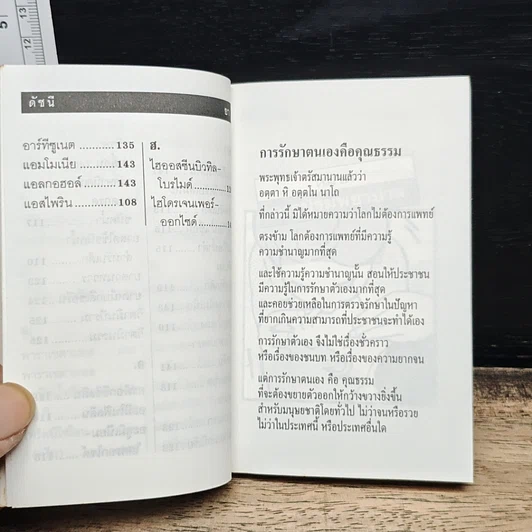 5
ดัชนี
อาร์ทีซูเนต ......... 135
แอมโมเนีย ......... 143
แอลกอฮอล์ ......... 143
แอสไพริน ......... 108
ฮ.
ไฮออสซีนบิวทิล-
โบรไมด์
ไฮโดรเจนเพอร์-
ออกไซด์
การรักษาตนเองคือคุณธรรม
พระพุทธเจ้าตรัสมานานแล้วว่า
อตฺตา หิ อตฺตโน นาโถ
ที่กล่าวนี้ มิได้หมายความว่าโลกไม่ต้องการแพทย์
ตรงข้าม โลกต้องการแพทย์ที่มีความรู้
ความชำนาญมากที่สุด
และใช้ความรู้ความชำนาญนั้น สอนให้ประชาชน
มีความรู้ในการรักษาตัวเองมากที่สุด
และคอยช่วยเหลือในการตรวจรักษาในปัญหา
ที่ยากเกินความสามารถที่ประชาชนจะทำได้เอง
การรักษาตัวเอง จึงไม่ใช่เรื่องชั่วคราว
หรือเรื่องของชนบท หรือเรื่องของความยากจน
แต่การรักษาตนเอง คือ คุณธรรม
ที่จะต้องขยายตัวออกให้กว้างขวางยิ่งขึ้น
สำหรับมนุษยชาติโดยทั่วไป ไม่ว่าจนหรือรวย
ไม่ว่าในประเทศนี้ หรือประเทศอื่นใด